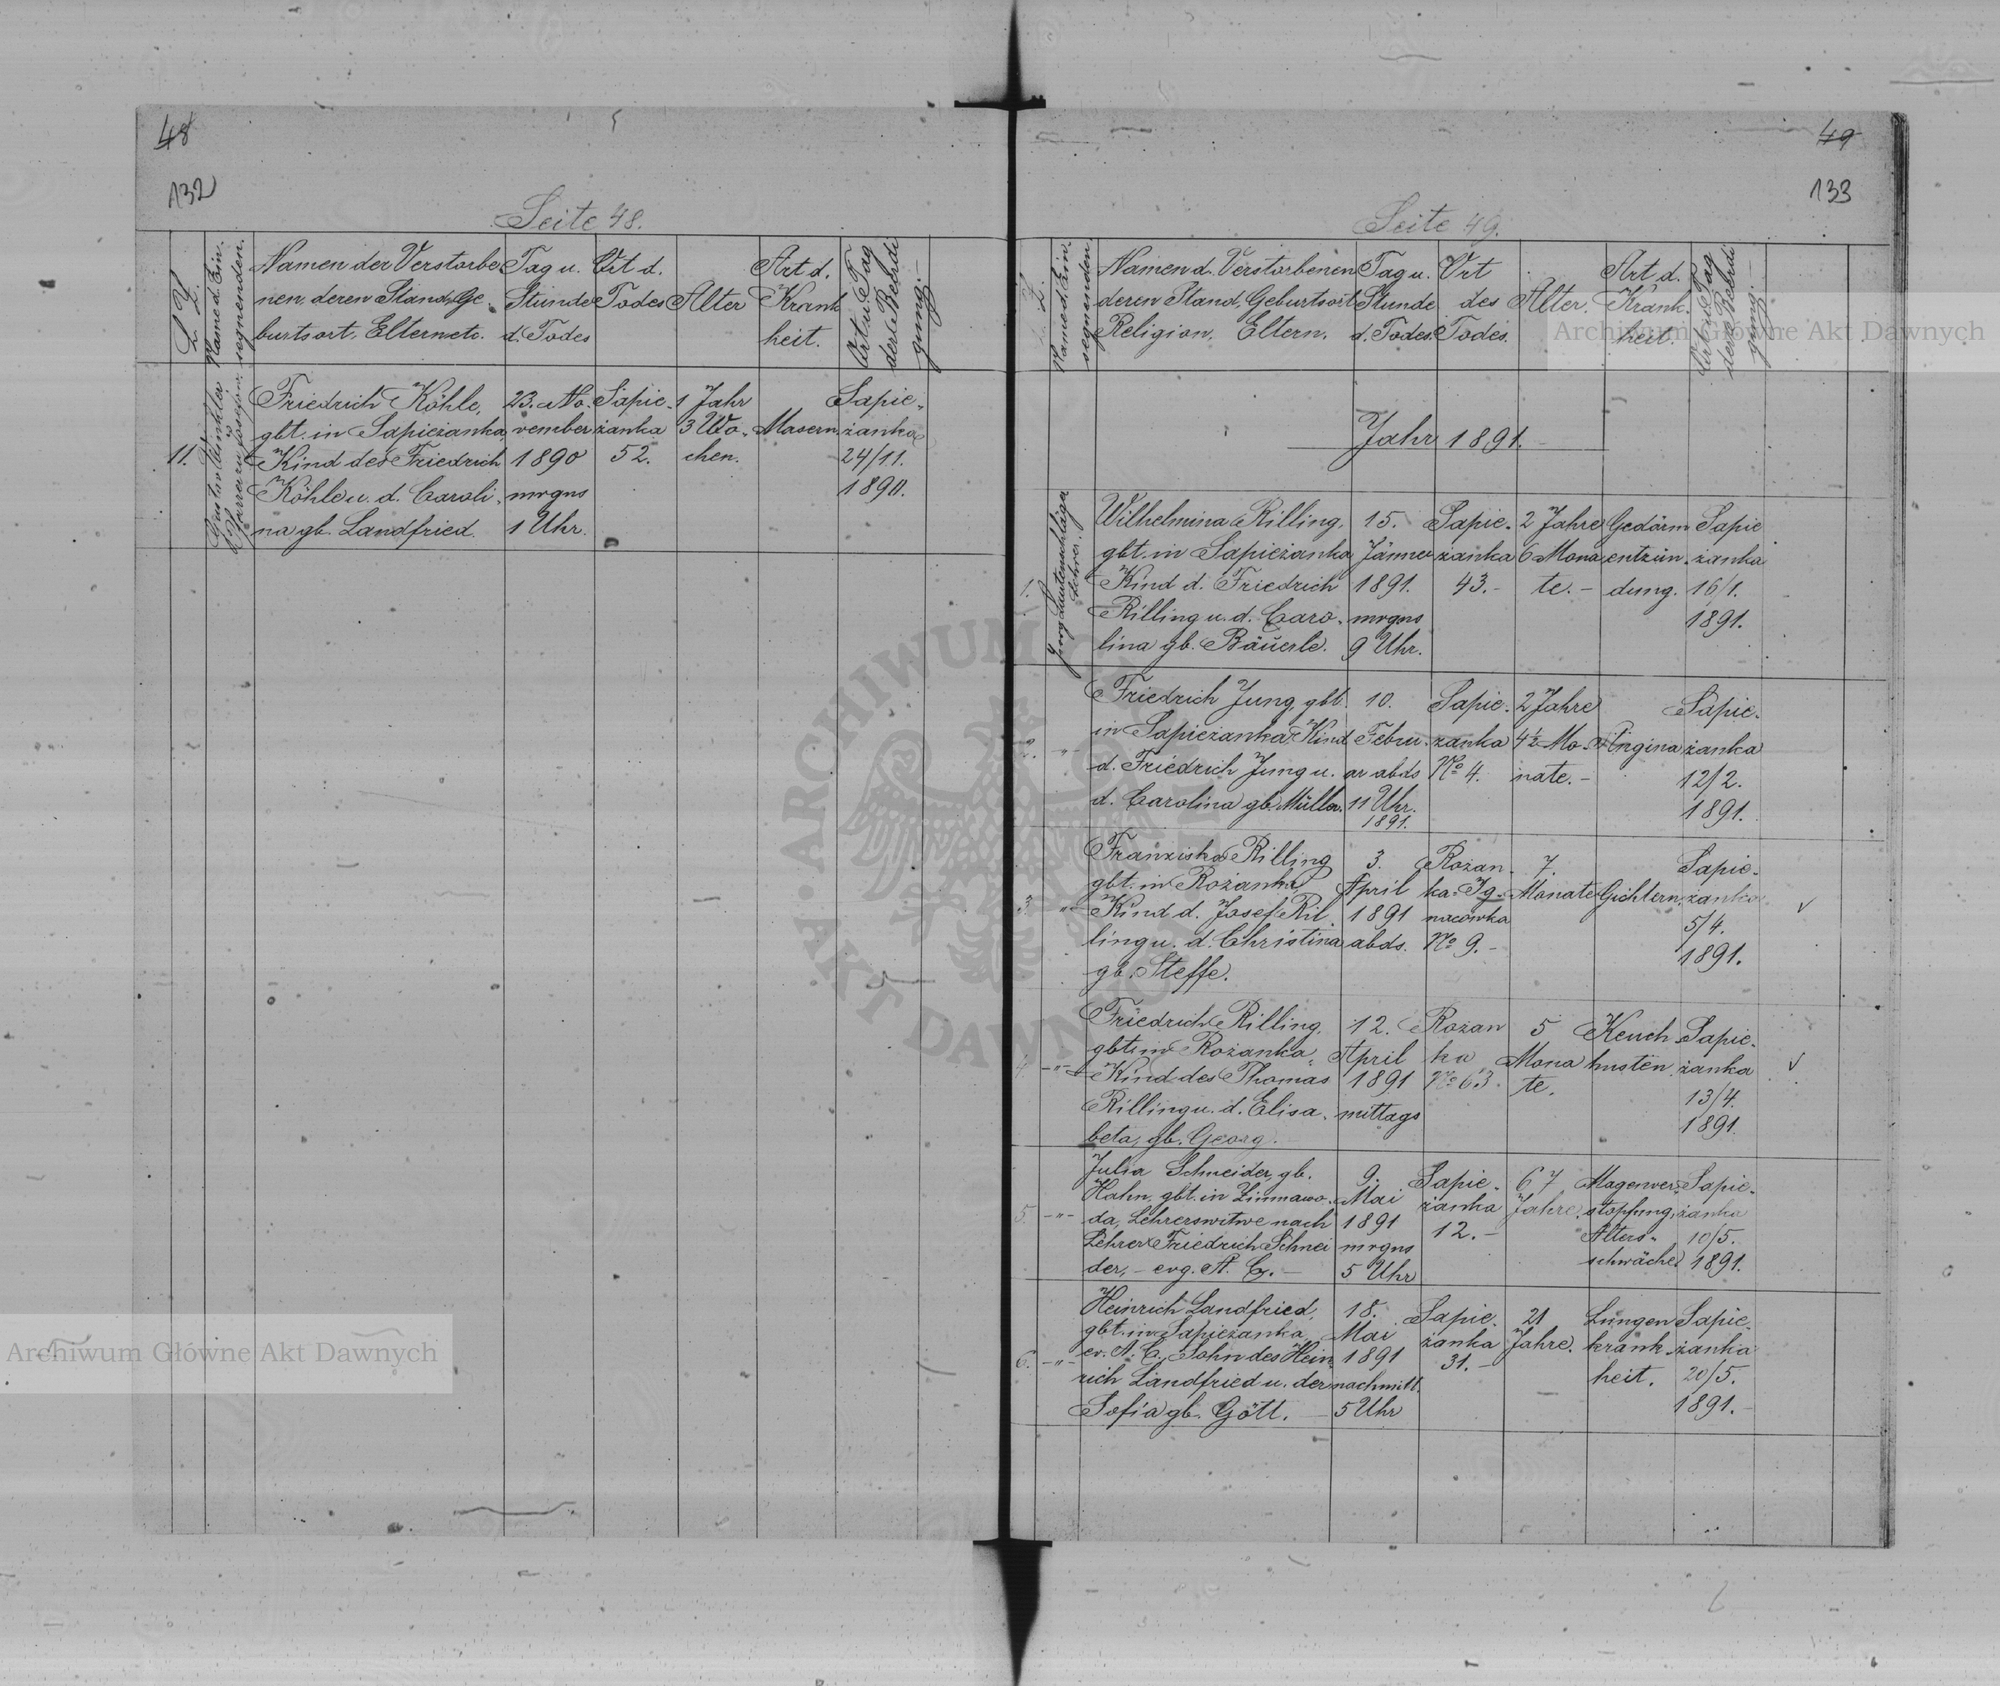 48
132
Seite 48.
L. Z.
Name d. Ein-
segnenden.
Namen der Verstorbe
nen, deren Stand, Ge-
burtsort, Eltern etc.
Tag u.
Stunde
d. Todes
Ort d.
Todes
Alter
Art d.
Krank
heit.
Ort u. Tag
der Beerdi
gung.-
11.
Gustav Winkler
Pfarrer zu Josefow
Friedrich Köhle,
gbt. in Sapieżanka,
Kind des Friedrich
Köhle u. d. Caroli-
na gb. Landfried.
23. No-
vember
1890
mrgns
1 Uhr.
Sapie-
żanka
52.
1 Jahr
3 Wo-
chen.
Masern.
Sapie-
żanka
24/11.
1890.
49
133
Seite 49.
Z.
Name d. Ein-
segnenden
Namen d. Verstorbenen
deren Stand, Geburtsort
Religion, Eltern.
Tag u.
Stunde
d. Todes.
Ort
des
Todes.
Alter.
Art d.
Krank-
heit.
Ort u. Tag
der Beerdi
gung.-
Jahr 1891.
1.
Lehrer.
Wilhelmina Rilling,
gbt. in Sapieżanka
Kind d. Friedrich
Rilling u. d. Caro-
lina gb. Bäuerle.
15.
Jänner
1891.
mrgns
9 Uhr.
Sapie-
żanka
43.-
2 Jahre
6 Mona
te.-
Gedärm
entzün-
dung.
Sapie
żanka
16/1.
1891.
2.
-"-
Friedrich Jung, gbt.
in Sapieżanka, Kind
d. Friedrich Jung u.
d. Carolina gb. Müller.
10.
Febru-
ar abds
11 Uhr.
1891.
Sapie-
żanka
No 4.
2 Jahre
4½ Mo-
nate.-
Angina
Sapie-
żanka
12/2.
1891.
3.
-"-
Franziska Rilling
gbt. in Rożanka,
Kind d. Josef Ril
ling u. d. Christina
gb. Steffe.
3.
April
1891
abds.
Rożan-
ka-Ig-
nacówka
No 9.-
7.
Monate
Gichtern.
Sapie-
żanka
5/4.
1891.
4.
-"-
Friedrich Rilling,
gbt. in Rożanka,
Kind des Thomas
Rilling u. d. Elisa-
beta, gb. Georg.
12.
April
1891
mittags
Rożan
ka
No 63.
5
Mona
te.
Keuch
husten.
Sapie-
żanka
13/4.
1891.
5.
-"-
Julia Schneider, gb.
Hahn, gbt. in Zimnawo-
da, Lehrerswitwe nach
Lehrer Friedrich Schnei
der,- evg. A. C.-
9.
Mai
1891
mrgns
5 Uhr
Sapie-
żanka
12.-
67
Jahre.
Magenver-
stopfung,
Alters-
schwäche
Sapie-
żanka
10/5.
1891.
6.
-"-
Heinrich Landfried,
gbt. in Sapieżanka,
ev. A. C., Sohn des Hein
rich Landfried u. der
Sofia gb. Gött.-
18.
Mai
1891
nachmitt.
5 Uhr
Sapie-
żanka
31.-
21
Jahre.
Lungen
krank-
heit.
Sapie-
żanka
20/5.
1891.-
Archiwum Główne Akt Dawnych
Archiwum Główne Akt Dawnych